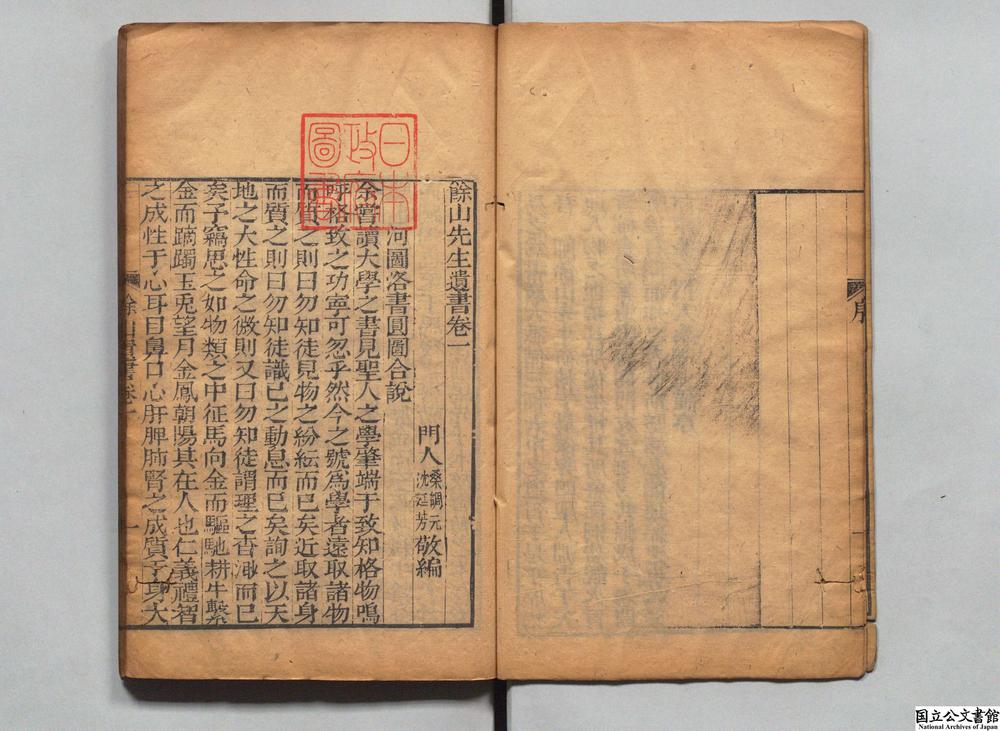 序
餘山先生遺書卷一
門人桑調元沈廷芳敬編
河圖洛書圓圖合說
余嘗讀大學之書見聖人之學肇端于致知格物鳴
呼格致之功寧可忽乎然今之號爲學者遠取諸物
而質之則曰勿知徒見物之紛紜而已矣近取諸身
而質之則曰勿知徒識已之動息而已矣詢之以天
地之大性命之微則又曰勿知徒謂理之杳渺而已
矣予竊思之如物類之中征馬向金而驅馳耕牛繫
金而蹢躅玉兎望月金鳳朝陽其在人也仁義禮智
之成性于心耳目鼻口心肝脾肺腎之成質于身大
餘山遺書卷一
一
日本政府圖書
国立公文書館
National Archives of Japan